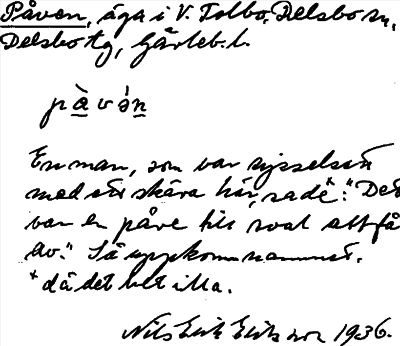 Påven, äga i V. Tolbo, Delsbo sn,
Delsbo tg, Gävleb. l.
pàvən
En man, som var sysselsatt
med att skära här, sadeˣ: "Det
var en påve till sval att få
av." Så uppkom namnet.
ˣ då det bet illa.
Nils Erik Eriksson 1936.